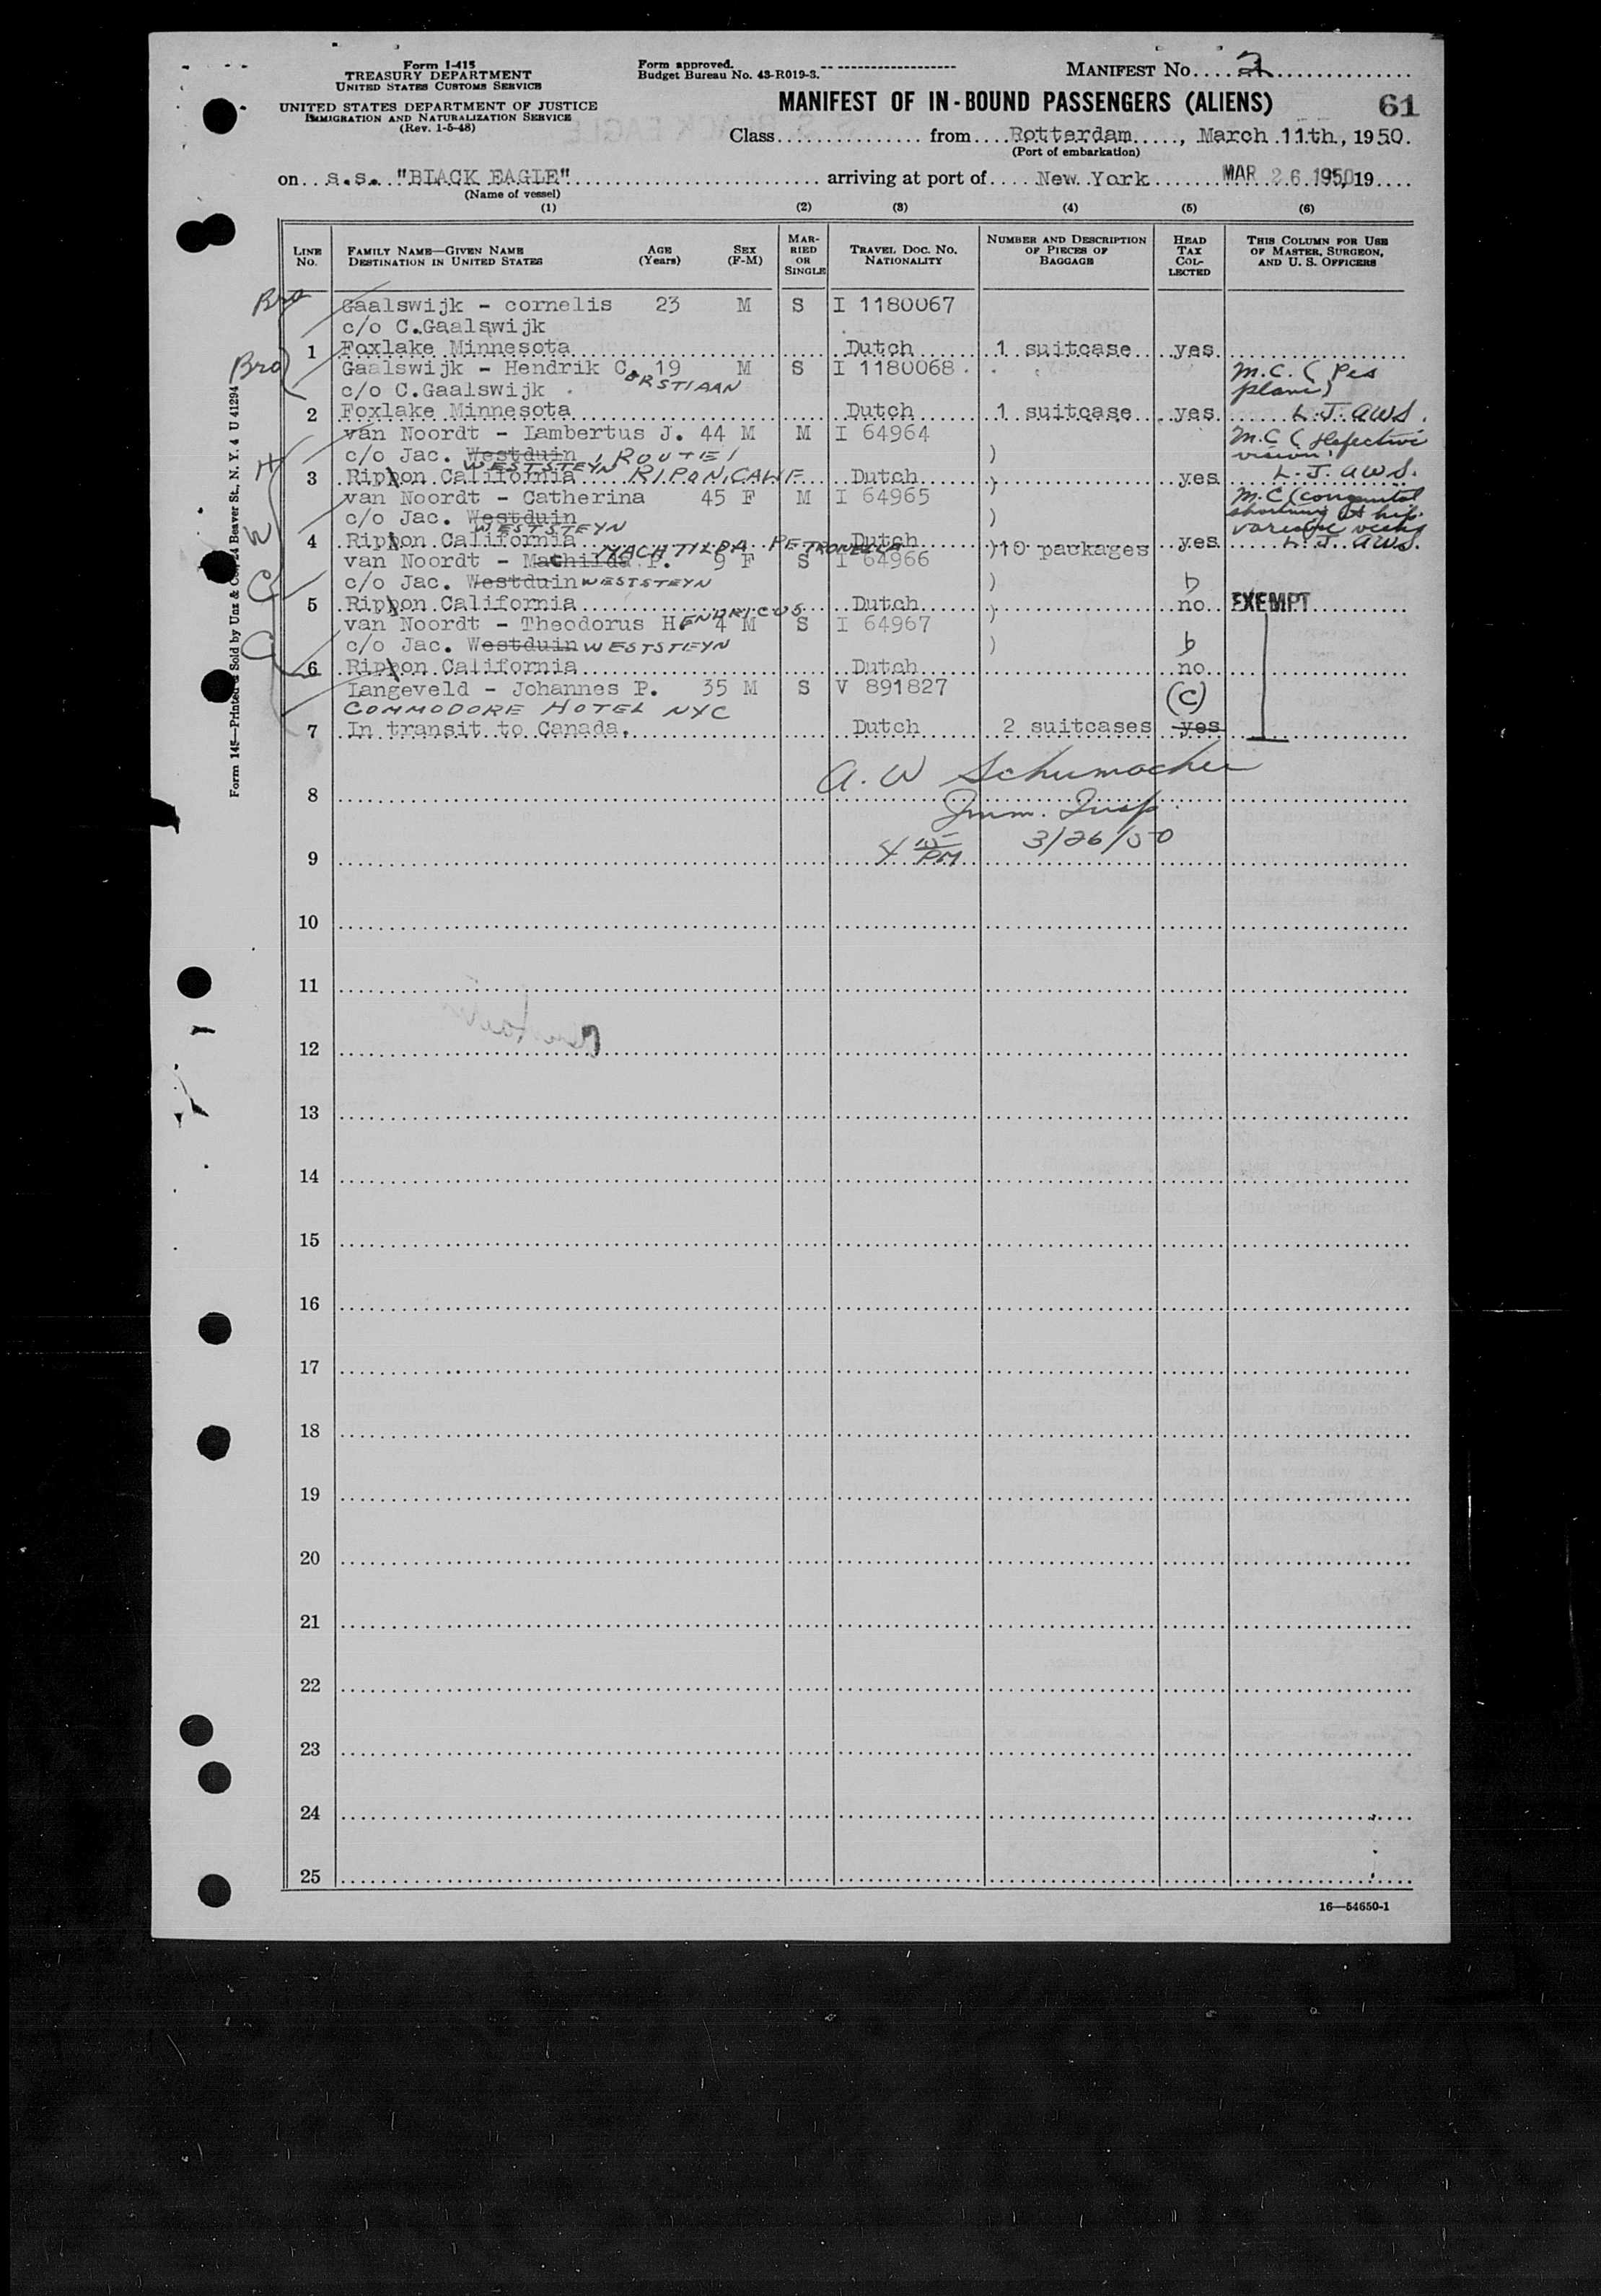 Form I-415
TREASURY DEPARTMENT
UNITED STATES CUSTOMS SERVICE
UNITED STATES DEPARTMENT OF JUSTICE
IMMIGRATION AND NATURALIZATION SERVICE
(Rev. 1-5-48)
Form approved.
Budget Bureau No. 43-R019-3.
MANIFEST No. 2
MANIFEST OF IN-BOUND PASSENGERS (ALIENS) 61
Class from Rotterdam, March 11th, 1950.
(Port of embarkation)
on s.s. "BLACK EAGLE" arriving at port of New York MAR 26 1950, 19
(Name of vessel)
(1) (2) (3) (4) (5) (6)
LINE No. FAMILY NAME—GIVEN NAME DESTINATION IN UNITED STATES AGE (Years) SEX (F-M) MARRIED OR SINGLE TRAVEL DOC. NO. NATIONALITY NUMBER AND DESCRIPTION OF PIECES OF BAGGAGE HEAD TAX COLLECTED THIS COLUMN FOR USE OF MASTER, SURGEON, AND U. S. OFFICERS
Bro Gaalswijk - cornelis 23 M S I 1180067
c/o C.Gaalswijk
1 Foxlake Minnesota Dutch 1 suitcase yes
Bro Gaalswijk - Hendrik C. 19 M S I 1180068 M.C. (Pes
ORSTIAAN
c/o C.Gaalswijk plani)
2 Foxlake Minnesota Dutch 1 suitcase yes L.J. AWS.
van Noordt - Lambertus J. 44 M M I 64964 M.C (defective
H c/o Jac. Westduin, ROUTE 1 ) vision)
WESTSTEYN RIPON, CALIF
3 Rippon California Dutch ) yes L.J. AWS.
van Noordt - Catherina 45 F M I 64965 M.C (congenital
W c/o Jac. Westduin ) shortening of hip.
WESTSTEYN varicose veins
4 Rippon California Dutch )10 packages yes L.J. AWS.
MACHTILDA PETRONELLA
van Noordt - Machilda P. 9 F S I 64966
C c/o Jac. Westduin WESTSTEYN ) b
5 Rippon California Dutch ) no EXEMPT
van Noordt - Theodorus HENDRICUS 4 M S I 64967
C c/o Jac. Westduin WESTSTEYN ) b
6 Rippon California Dutch no
Langeveld - Johannes P. 35 M S V 891827 (C)
COMMODORE HOTEL NYC
7 In transit to Canada. Dutch 2 suitcases yes
A. W Schumacher
8
Imm. Insp.
4 15 PM 3/26/50
9
10
11
12
13
14
15
16
17
18
19
20
21
22
23
24
25
16—54650-1
Form 145—Printed & Sold by Unz & Co., 24 Beaver St., N. Y. 4 U 41294